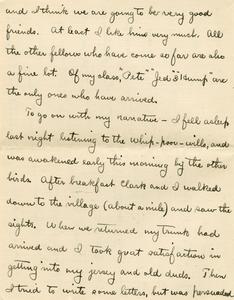 and I think we are going to be very good
friends. At least I like him very much. All
the other fellows who have come so far are also
a fine lot. Of my class, "Pete" "Jed" & "Bump" are
the only ones who have arrived.
To go on with my narrative - I fell asleep
last night listening to the Whip-poor-wills, and
was awakened early this morning by the other
birds. After breakfast Clark and I walked
down to the village (about a mile) and saw the
sights. When we returned my trunk had
arrived and I took great satisfaction in
getting into my jersey and old duds. Then
I tried to write some letters, but was persuaded